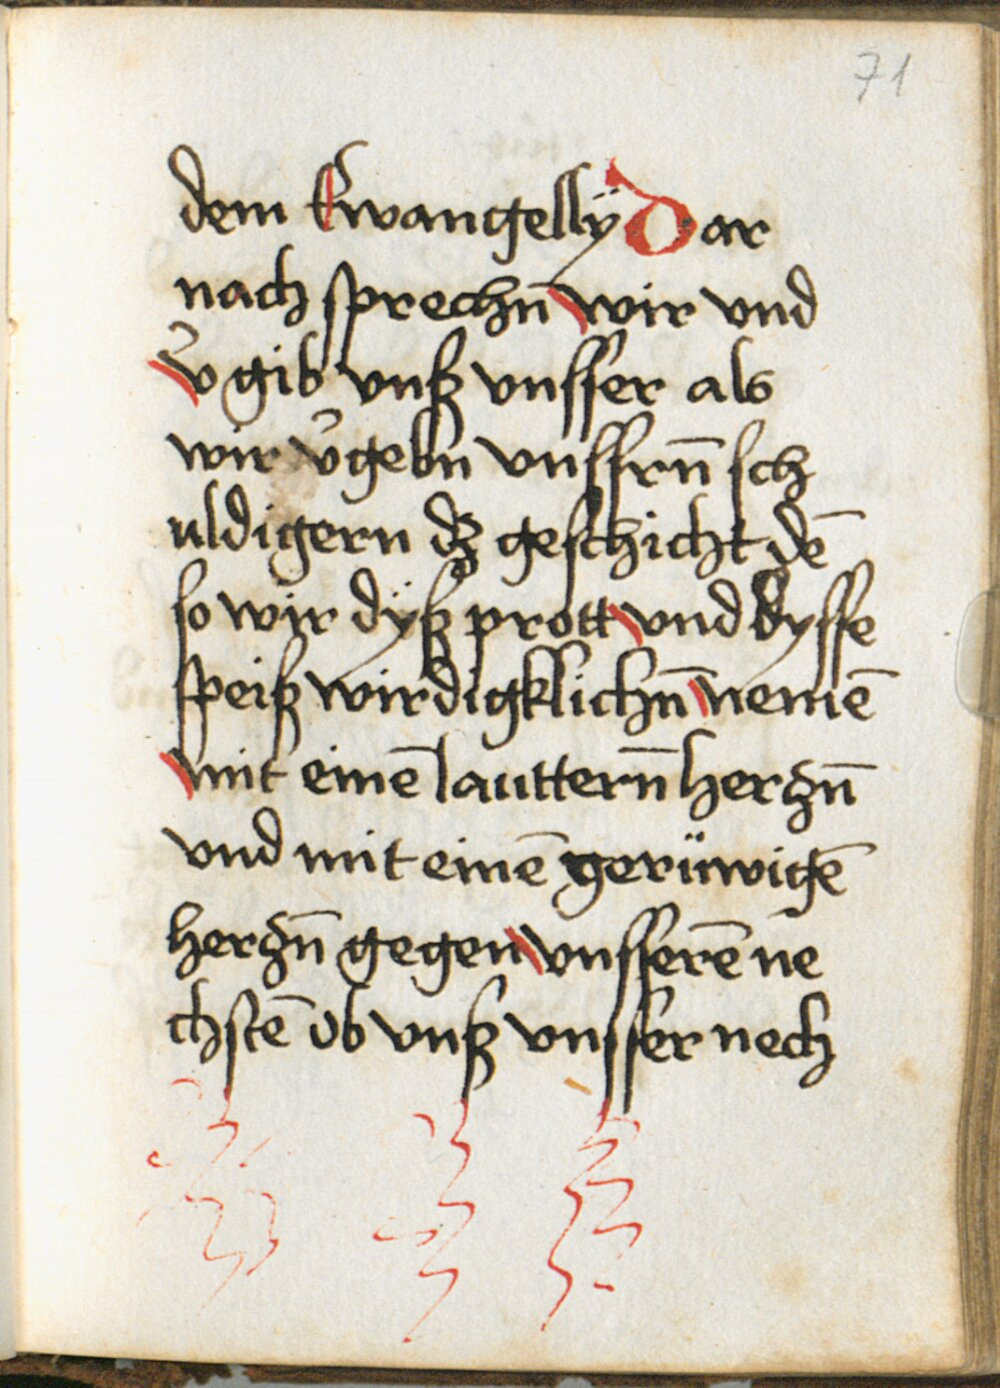 71
dem Ewangellÿ Dar
nach sprechn̄ wir vnd
v̉ gib vnß vnsser als
wir v̉gebn vnssrn̄ sch
uldigern dz geschicht dē
so wir dÿß prott vnd dysse
speiß wirdigklichn̄ nemē
mit einē lauttern̄ herzn̄
vnd mit einē gerüwigē
herzn̄ gegen vnsserē ne
chstē ob vnß vnsser nech